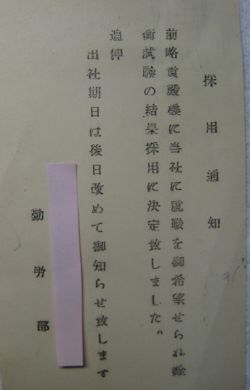 採用通知
前略貴殿儀に当社に就職を御希望せられ銓
衡試験の結果採用に決定致しました。
追伸
出社期日は後日改めて御知らせ致します
勤労部